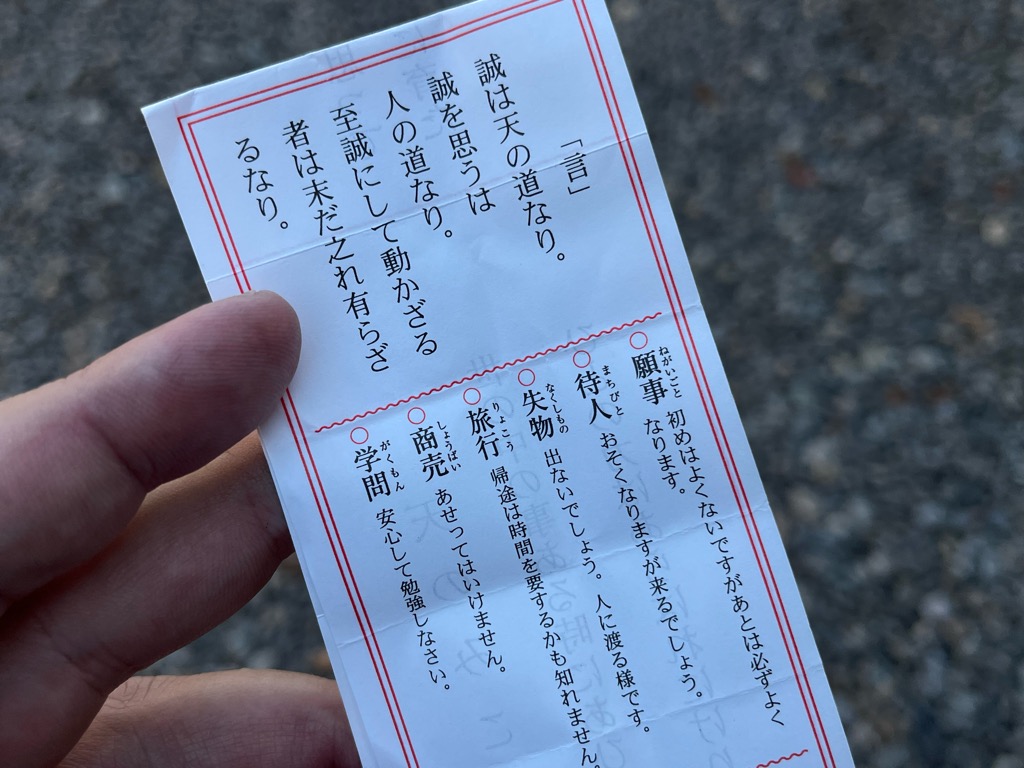 「言」
誠は天の道なり。
誠を思うは
人の道なり。
至誠にして動かざる
者は未だ之れ有らざ
るなり。
○願事 初めはよくないですがあとは必ずよく
ねがいごと
なります。
○待人 おそくなりますが来るでしょう。
まちびと
○失物 出ないでしょう。人に渡る様です。
なくしもの
○旅行 帰途は時間を要するかも知れません。
りょこう
○商売 あせってはいけません。
しょうばい
○学問 安心して勉強しなさい。
がくもん